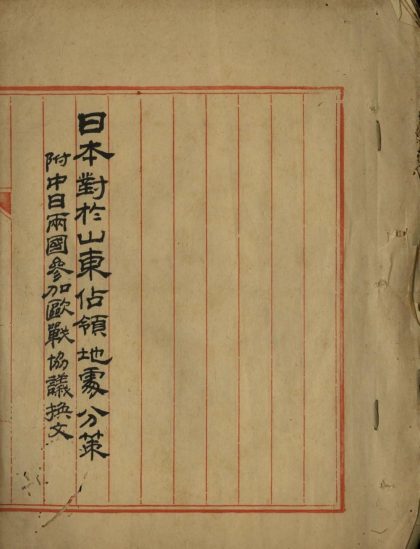 日本對於山東佔領地處分策
附中日兩國參加歐戰協議換文